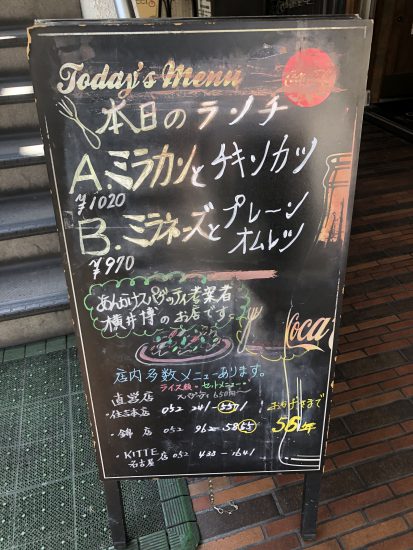 Today's Menu
本日のランチ
A.ミラカンとチキンカツ
¥1020
B.ミラネーズとプレーンオムレツ
¥970
あんかけスパゲッティ考案者
横井博のお店です。
Coca
店内多数メニューあります。
ライス類・セットメニュー・
スパゲティ650円〜
直営店
・住吉本店 052 241-5571
・錦店 052 962-5855
・KITTE名古屋 052 433-1641
おかげさまで
56年